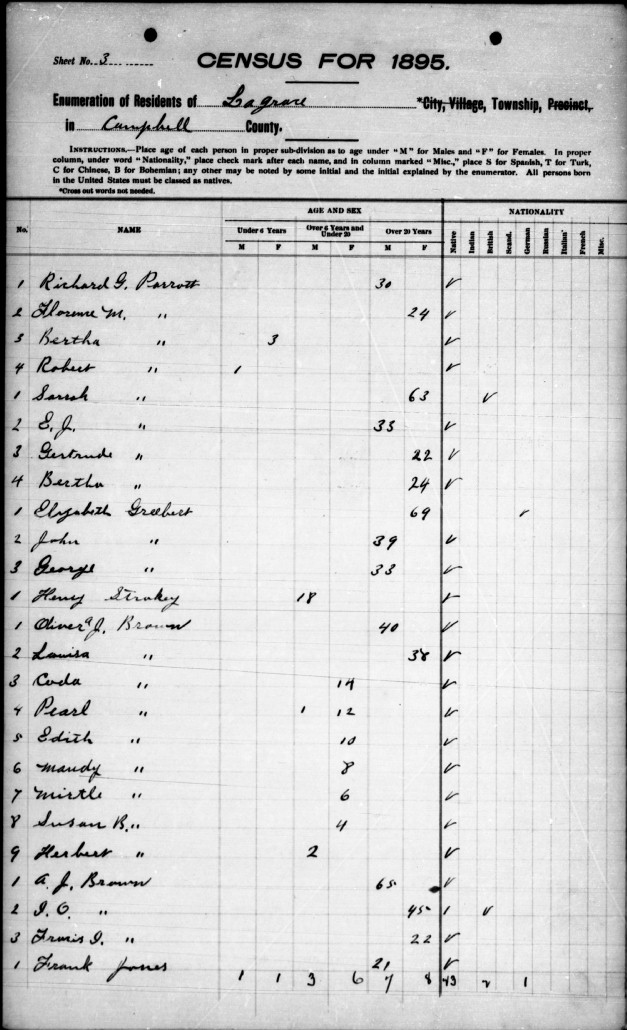 Sheet No. 3
CENSUS FOR 1895.
Enumeration of Residents of Lagrace *City, Village, Township, Precinct,
in Campbell County.
INSTRUCTIONS.—Place age of each person in proper sub-division as to age under "M" for Males and "F" for Females. In proper
column, under word "Nationality," place check mark after each name, and in column marked "Misc.," place S for Spanish, T for Turk,
C for Chinese, B for Bohemian; any other may be noted by some initial and the initial explained by the enumerator. All persons born
in the United States must be classed as natives.
*Cross out words not needed.
AGE AND SEX NATIONALITY
No. NAME Under 6 Years Over 6 Years and Under 20 Over 20 Years Native Indian British Scand. German Russian Italian French Misc.
M F M F M F
1 Richard G. Parrott 30 ✓
2 Florence M. " 24 ✓
3 Bertha " 3 ✓
4 Robert " 1 ✓
1 Sarah " 63 ✓
2 E. J. " 35 ✓
3 Gertrude " 22 ✓
4 Bertha " 24 ✓
1 Elizabeth 69 ✓
2 John " 39 ✓
3 George " 33 ✓
1 Henry Strokey 18 ✓
1 Oliver J. Brown 40 ✓
2 Louisa " 38 ✓
3 Coda " 14 ✓
4 Pearl " 1 12 ✓
5 Edith " 10 ✓
6 Mandy " 8 ✓
7 Mirtle " 6 ✓
8 Susan B. " 4 ✓
9 Herbert " 2 ✓
1 A. J. Brown 65 ✓
2 I. O. " 45 1 ✓
3 " 22 ✓
1 Frank Jones 21 ✓
1 1 3 6 7 8 2 1